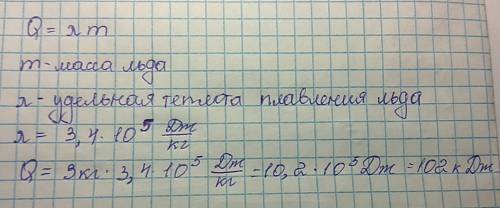 Q = λ m
m - масса льда
λ - удельная теплота плавления льда
λ = 3,4 · 10⁵ Дж/кг
Q = 3кг · 3,4 · 10⁵ Дж/кг = 10,2 · 10⁵ Дж = 102 кДж